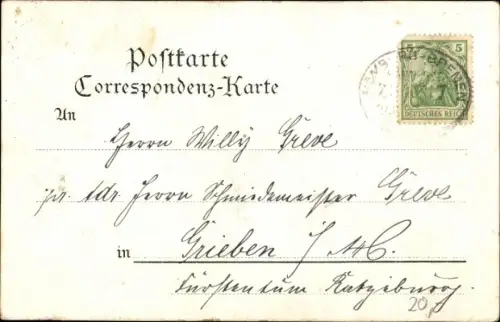 Postkarte
Correspondenz-Karte
5 5
HAMBURG-BREMEN
DEUTSCHES REICH
An
Herrn Willy Greve
pr. adr. Herrn Schmiedemeister Greve
in Grieben i/M
Fürstentum Ratzeburg.
20